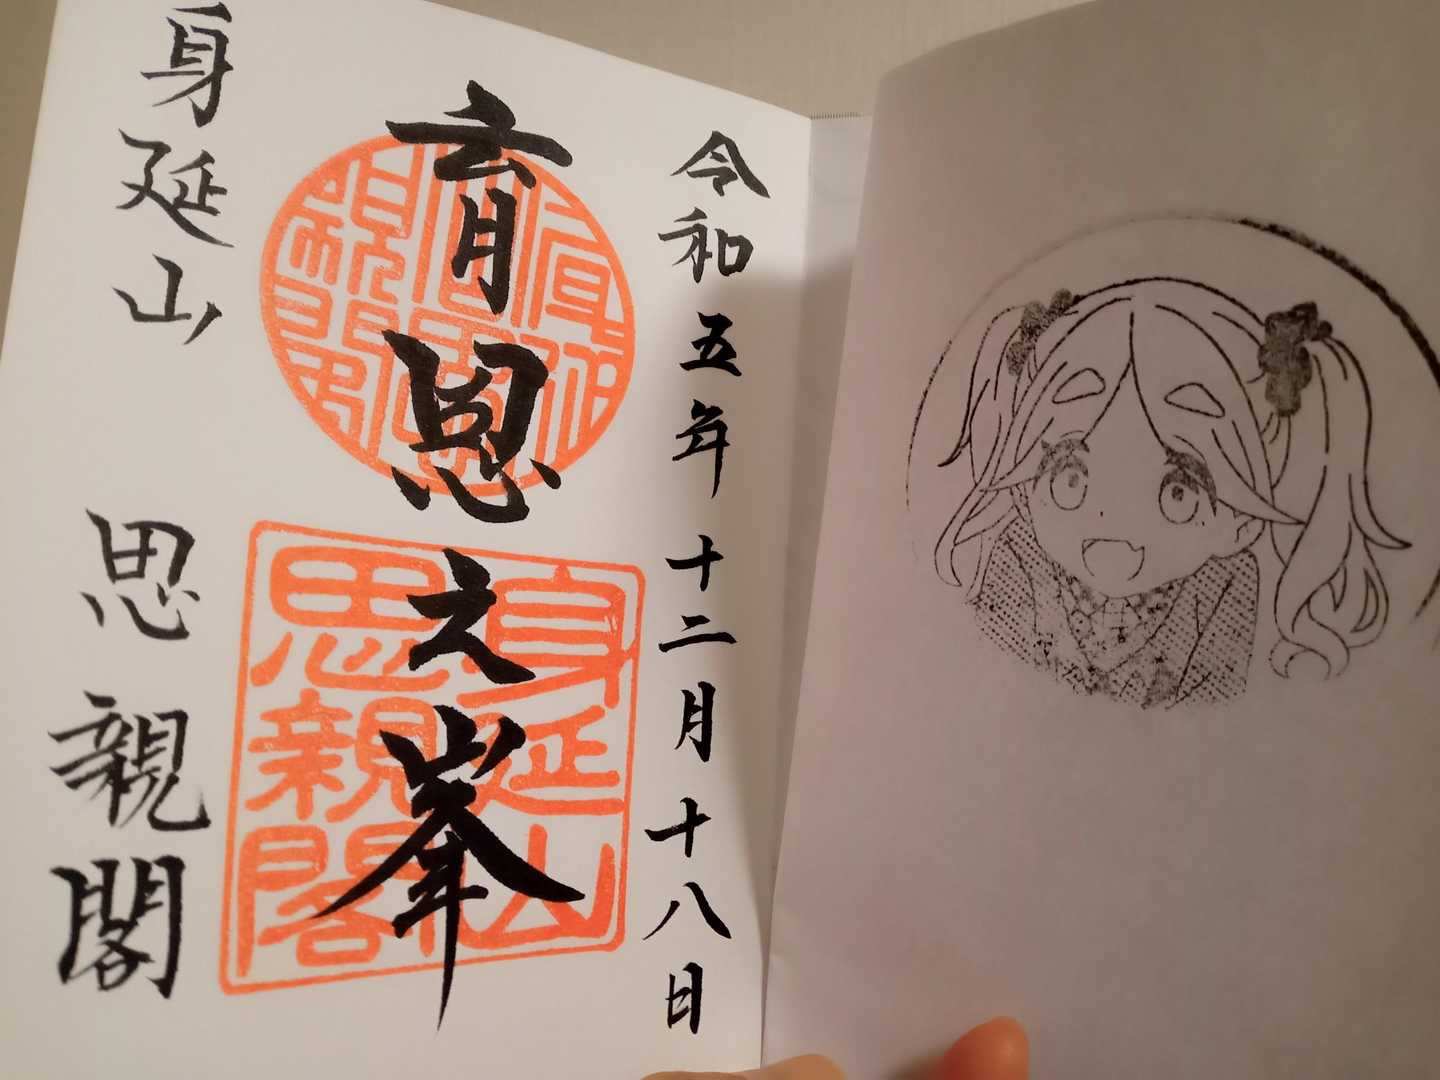 令和五年十二月十八日
育恩之峯
身延山
思親閣
身延山 思親閣